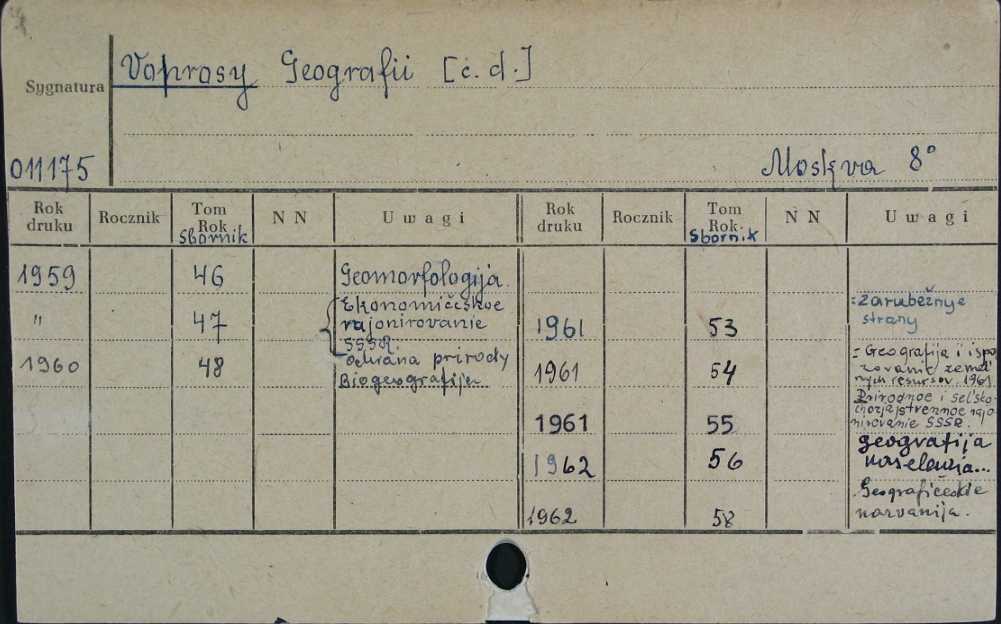 Voprosy Geografii [c.d.]
Sygnatura
011175
Moskva 8°
Rok druku Rocznik Tom Rok Sbornik N N Uwagi Rok druku Rocznik Tom Rok Sbornik N N Uwagi
1959 46 Geomorfologija.
" 47 Ekonomičeskoe
rajonirovanie
SSSR.
1960 48 Ochrana prirody
Biogeografija.
1961 53 = Zarubežnye
strany
1961 54 = Geografija i ispo
zovanie zemel'
nych resursov. 1961
1961 55 Prirodnoe i sel'sko-
chozjajstvennoe rajo
nirovanie SSSR.
1962 56 geografija
naselenija...
1962 58 Geografičeskie
nazvanija.